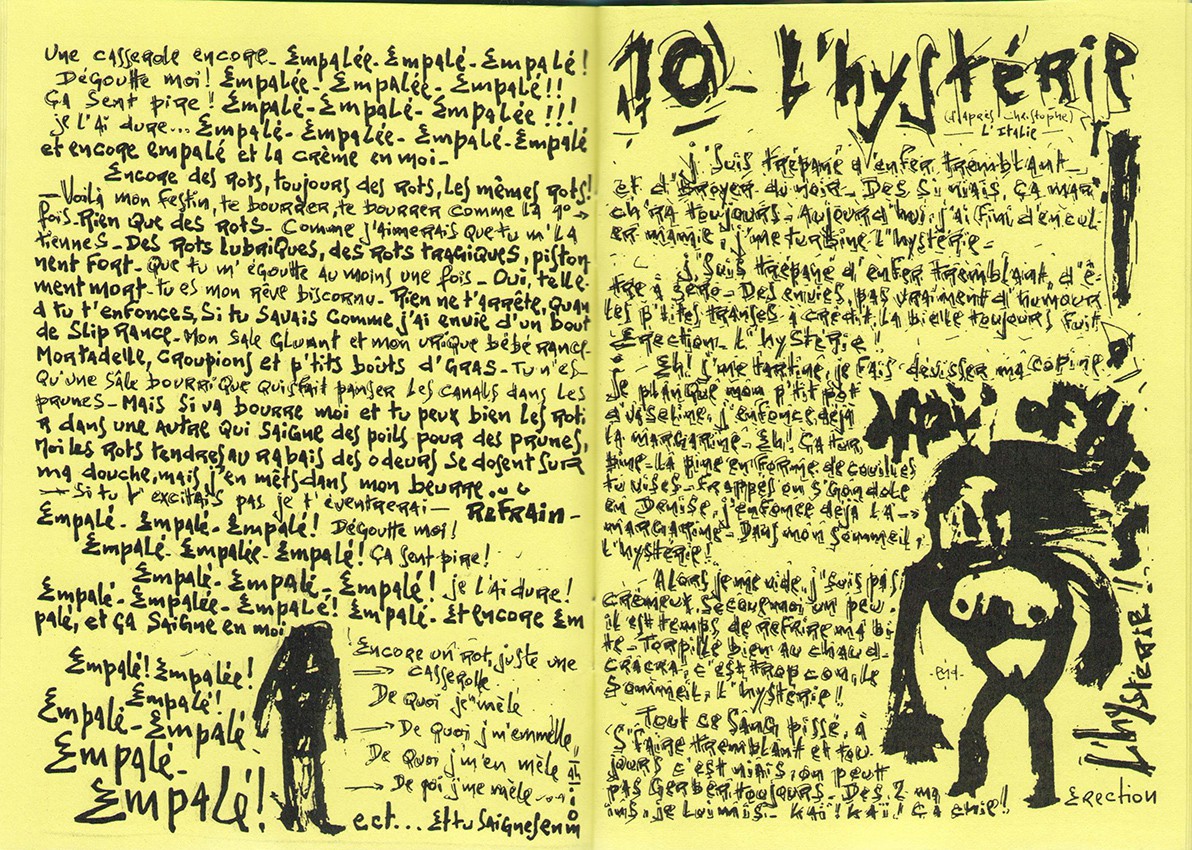 Une casserole encore - Empalée - Empalé - Empalé !
Dégoutte moi ! Empalée - Empalée - Empalé !!
ça sent pire ! Empalé - Empalé - Empalée !!!
je l'ai dure... Empalé - Empalée - Empalé - Empalé
et encore empalé et la crème en moi -
Encore des rots, toujours des rots, les mêmes rots !
- Voilà mon festin, te bourrer, te bourrer comme la 1° →
fois - Rien que des rots - Comme j'aimerais que tu m'la
tiennes - Des rots lubriques, des rots tragiques, piston
nent fort - que tu m'égoutte au moins une fois - Oui, telle-
ment mort - tu es mon rêve biscornu - Rien ne t'arrête, quan
d tu t'enfonces, si tu savais comme j'ai envie d'un bout
de slip rance - Mon sale gluant et mon unique bébé rance -
Mortadelle, croupions et p'tits bouts d'gras - Tu n'es
qu'une sâle bourrique qui sait panser les canals dans les
prunes - Mais si va bourre moi et tu peux bien les roti
r dans une autre qui saigne des poils pour des prunes,
moi les rots tendres au rabais des odeurs se dosent sur
ma douche, mais j'en mets dans mon beurre...
- Si tu t'excitais pas je t'éventrerai - REFRAIN -
Empalé - Empalé - Empalé ! Dégoutte moi !
Empalé - Empalée - Empalé ! ça sent pire !
Empalé - Empalé - Empalé ! je l'ai dure !
Empalé - Empalée - Empalé ! Empalé - Et encore Em
palé, et ça saigne en moi
Empalé ! Empalée !
Empalé !
Empalé - Empalé
Empalé -
Empalé !
Encore un rot, juste une
→ casserole
De quoi je mèle
→ De quoi j'm'emmelle
De quoi j'm'en mèle
→ De qoi j'me mèle
ect... Et tu saignes en m
10 - L'hystérie
(d'après Christophe)
L'Italie
j'suis trépané d'enfer tremblant -
et d'broyer du noir - Des si niais, ça mari
ch'ra toujours - Aujourd'hui, j'ai fini d'encul
er mamie, j'me turbine l'hystérie -
j'suis trépané d'enfer tremblant, d'ê-
tre à séro - Des envies, pas vraiment d'humour
Les p'tites transes à crédit, la bielle toujours fuit
Erection - L'hystérie !
Eh ! j'me tartine, je fais dévisser ma copine
je planque mon p'tit pot
d'vaseline, j'enfonce déjà
la margarine - Eh ! ça tur
bine - La pine en forme de couilles
tu vises - Frappes on s'gondole
en Denise, j'enfonce déjà la →
margarine - Dans mon sommeil,
l'hystérie !
Alors je me vide, j'suis pas
crémeux, secoue moi un peu.
il est temps de refaire ma bi
te - Torpille bien au chaud -
cracra, c'est trop con, le
sommeil, l'hystérie !!
Tout ce sang pissé, à
s'faire tremblant et tou
jours c'est niais, on peut
pas gerber toujours - Des 2 ma
ins, je - Kaï ! Kaï ! ça chie !!
L'hysterie !!
Erection